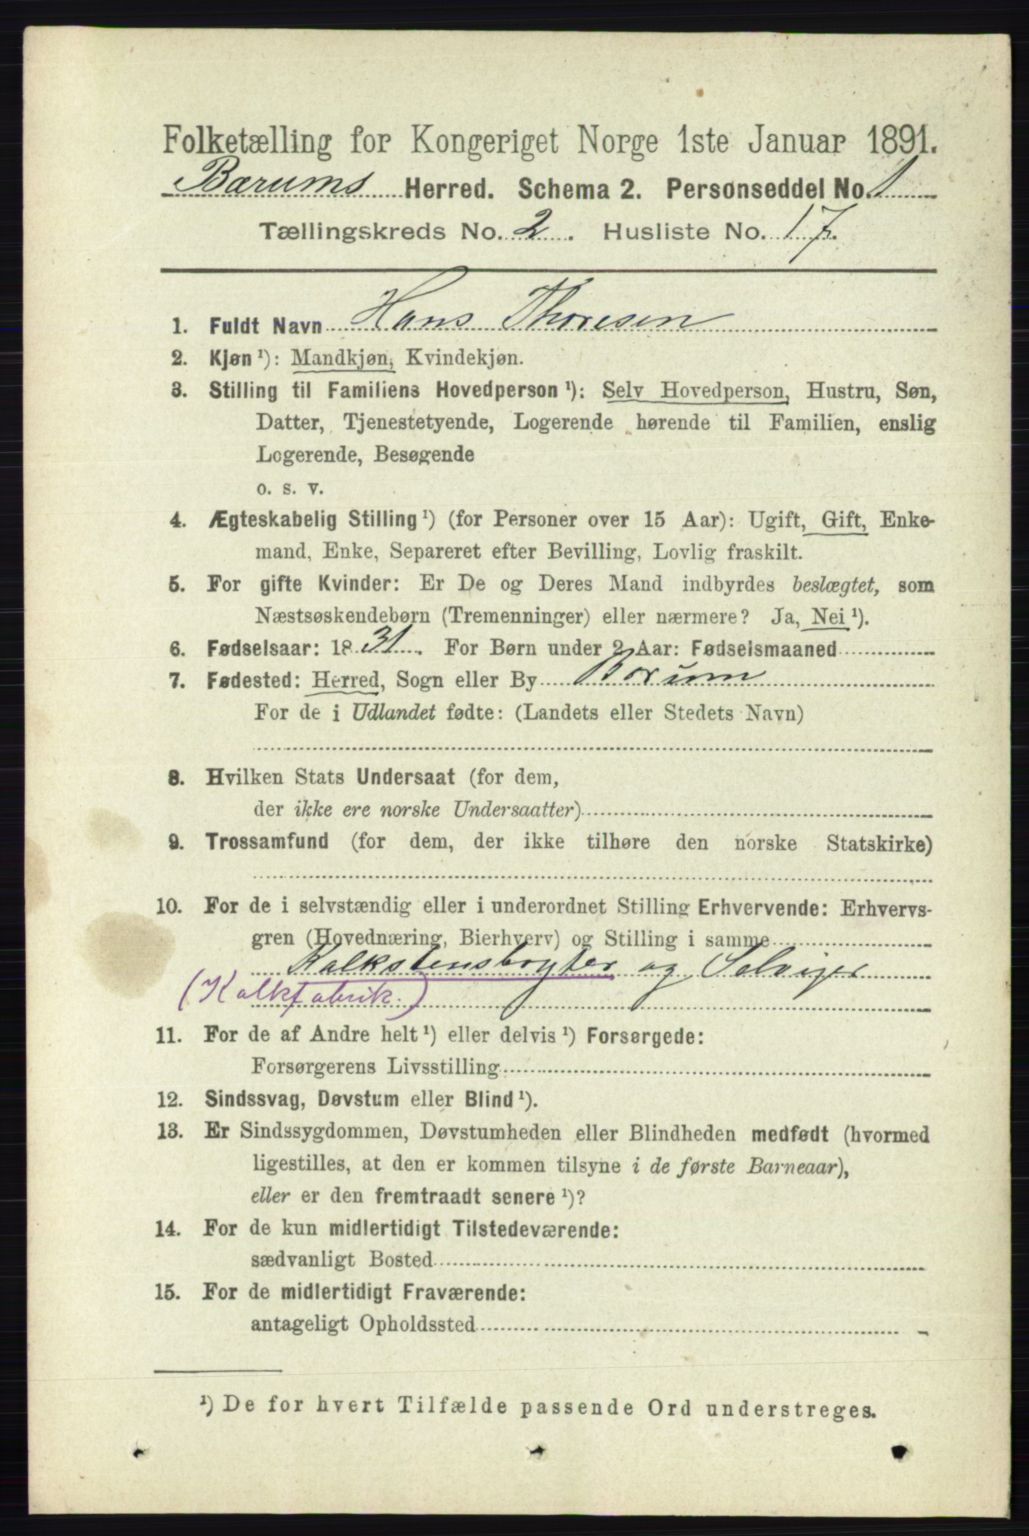 Folketælling for Kongeriget Norge 1ste Januar 1891.
Bærums Herred. Schema 2. Personseddel No. 1
Tællingskreds No. 2. Husliste No. 17.
1. Fuldt Navn Hans Thoresen
2. Kjøn ¹): Mandkjøn, Kvindekjøn.
3. Stilling til Familiens Hovedperson ¹): Selv Hovedperson, Hustru, Søn,
Datter, Tjenestetyende, Logerende hørende til Familien, enslig
Logerende, Besøgende
o. s. v.
4. Ægteskabelig Stilling ¹) (for Personer over 15 Aar): Ugift, Gift, Enke-
mand, Enke, Separeret efter Bevilling, Lovlig fraskilt.
5. For gifte Kvinder: Er De og Deres Mand indbyrdes beslægtet, som
Næstsøskendebørn (Tremenninger) eller nærmere? Ja, Nei ¹).
6. Fødselsaar: 1831. For Børn under 2 Aar: Fødselsmaaned
7. Fødested: Herred, Sogn eller By Borum
For de i Udlandet fødte: (Landets eller Stedets Navn)
8. Hvilken Stats Undersaat (for dem,
der ikke ere norske Undersaatter)
9. Trossamfund (for dem, der ikke tilhøre den norske Statskirke)
10. For de i selvstændig eller i underordnet Stilling Erhvervende: Erhvervs-
gren (Hovednæring, Bierhverv) og Stilling i samme
Kalkstensbryter og Selveier
(Kalkfabrik.)
11. For de af Andre helt ¹) eller delvis ¹) Forsørgede:
Forsørgerens Livsstilling
12. Sindssvag, Døvstum eller Blind ¹).
13. Er Sindssygdommen, Døvstumheden eller Blindheden medfødt (hvormed
ligestilles, at den er kommen tilsyne i de første Barneaar),
eller er den fremtraadt senere ¹)?
14. For de kun midlertidigt Tilstedeværende:
sædvanligt Bosted
15. For de midlertidigt Fraværende:
antageligt Opholdssted
¹) De for hvert Tilfælde passende Ord understreges.